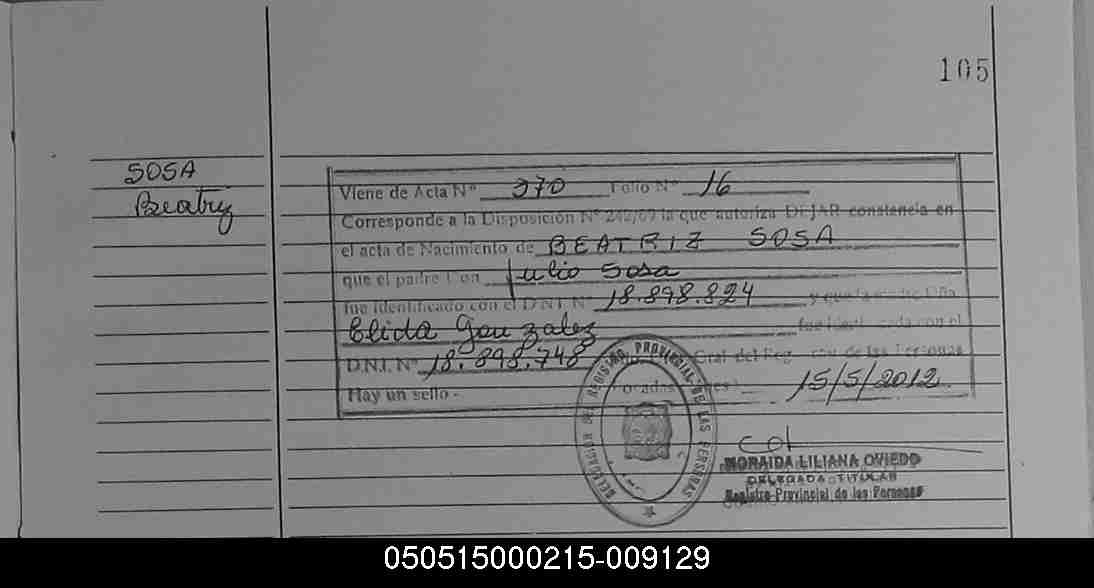 105
SOSA
Beatriz
Viene de Acta Nº 370 Folio Nº 16
Corresponde a la Disposición Nº 242/67 la que autoriza DEJAR constancia en
el acta de Nacimiento de BEATRIZ SOSA
que el padre Don Julio Sosa
fue identificado con el D.N.I. Nº 18.898.824 y que la madre Dña
Elida Gonzalez fue identificada con el
D.N.I. Nº 18.898.748 Gral. del Reg de las Personas
Hay un sello - 15/5/2012.
DELEGACION DEL REGISTRO PROVINCIAL DE LAS PERSONAS
MORAIDA LILIANA OVIEDO
DELEGADA TITULAR
Registro Provincial de las Personas
050515000215-009129